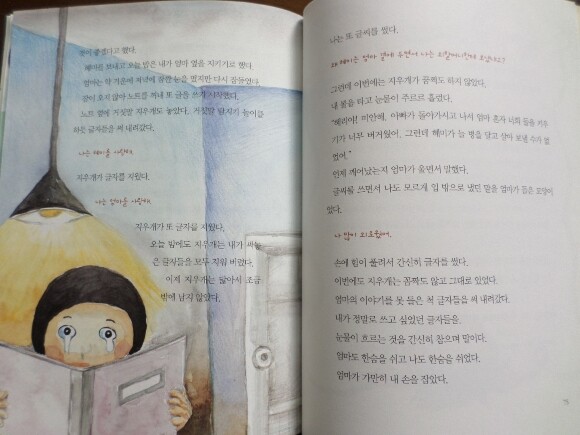 좋이 좋겠다고 했다.
혜미를 보내고 오늘 밤은 내가 엄마 옆을 지키기로 했다.
엄마는 약 기운에 저녁에 잠깐 눈을 떴지만 다시 잠들었다.
잠이 오지 않아 노트를 꺼내 또 글을 쓰기 시작했다.
노트 옆에 거짓말 지우개도 놓았다. 거짓말 탐지기 놀이를
하듯 글자들을 써 내려갔다.
나는 혜미를 사랑해.
지우개가 글자를 지웠다.
나는 엄마를 사랑해.
지우개가 또 글자를 지웠다.
오늘 밤에도 지우개는 내가 써놓
은 글자들을 모두 지워 버렸다.
이제 지우개는 닳아서 조금
밖에 남지 않았다.
나는 또 글씨를 썼다.
왜 혜미는 엄마 옆에 두면서 나는 외할머니한테 보냈나요?
그런데 이번에는 지우개가 꿈쩍도 하지 않았다.
내 볼을 타고 눈물이 주르르 흘렀다.
"혜리야! 미안해. 아빠가 돌아가시고 나서 엄마 혼자 너희 둘을 키우
기가 너무 버거웠어. 그런데 혜미가 늘 병을 달고 살아 보낼 수가 없
었어."
언제 깨어났는지 엄마가 울면서 말했다.
글씨를 쓰면서 나도 모르게 입 밖으로 냈던 말을 엄마가 들은 모양이
었다.
나 많이 외로웠어.
손에 힘이 풀려서 간신히 글자를 썼다.
이번에도 지우개는 꼼짝도 않고 그대로 있었다.
엄마의 이야기를 못 들은 척 글자들을 써 내려갔다.
내가 정말로 쓰고 싶었던 글자들을.
눈물이 흐르는 것을 간신히 참으며 말이다.
엄마도 한숨을 쉬고 나도 한숨을 쉬었다.
엄마가 가만히 내 손을 잡았다.